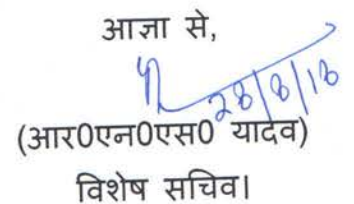 आज्ञा से,
28/8/18
(आर0एन0एस0 यादव)
विशेष सचिव।